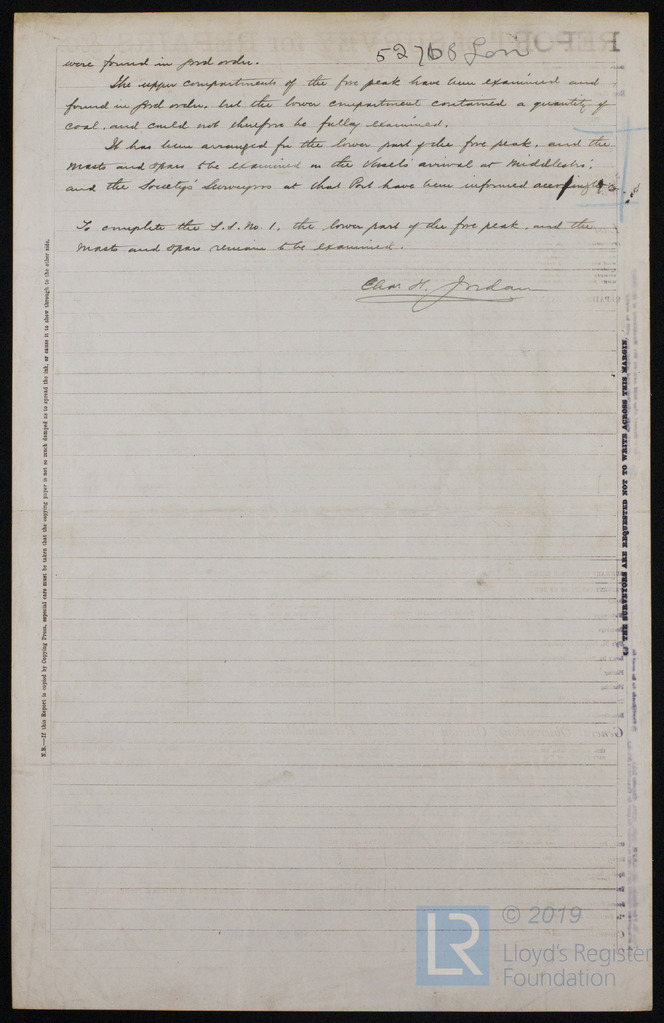 52768 Lon
were found in good order.
The upper compartments of the fore peak have been examined and
found in good order, but the lower compartment contained a quantity of
coal, and could not therefore be fully examined.
It has been arranged for the lower part of the fore peak, and the
masts and spars to be examined on the Vessel's arrival at Middlesbro';
and the Society's Surveyors at that Port have been informed accordingly.
To complete the S.S. No. 1. the lower part of the fore peak, and the
masts and spars remain to be examined.
Chas. H. Jordan
N.B.—If this Report is copied by Copying Press, especial care must be taken that the copying paper is not so much damped as to spread the ink, or cause it to show through to the other side.
THE SURVEYORS ARE REQUESTED NOT TO WRITE ACROSS THIS MARGIN.
LR
© 2019
Lloyd's Register
Foundation